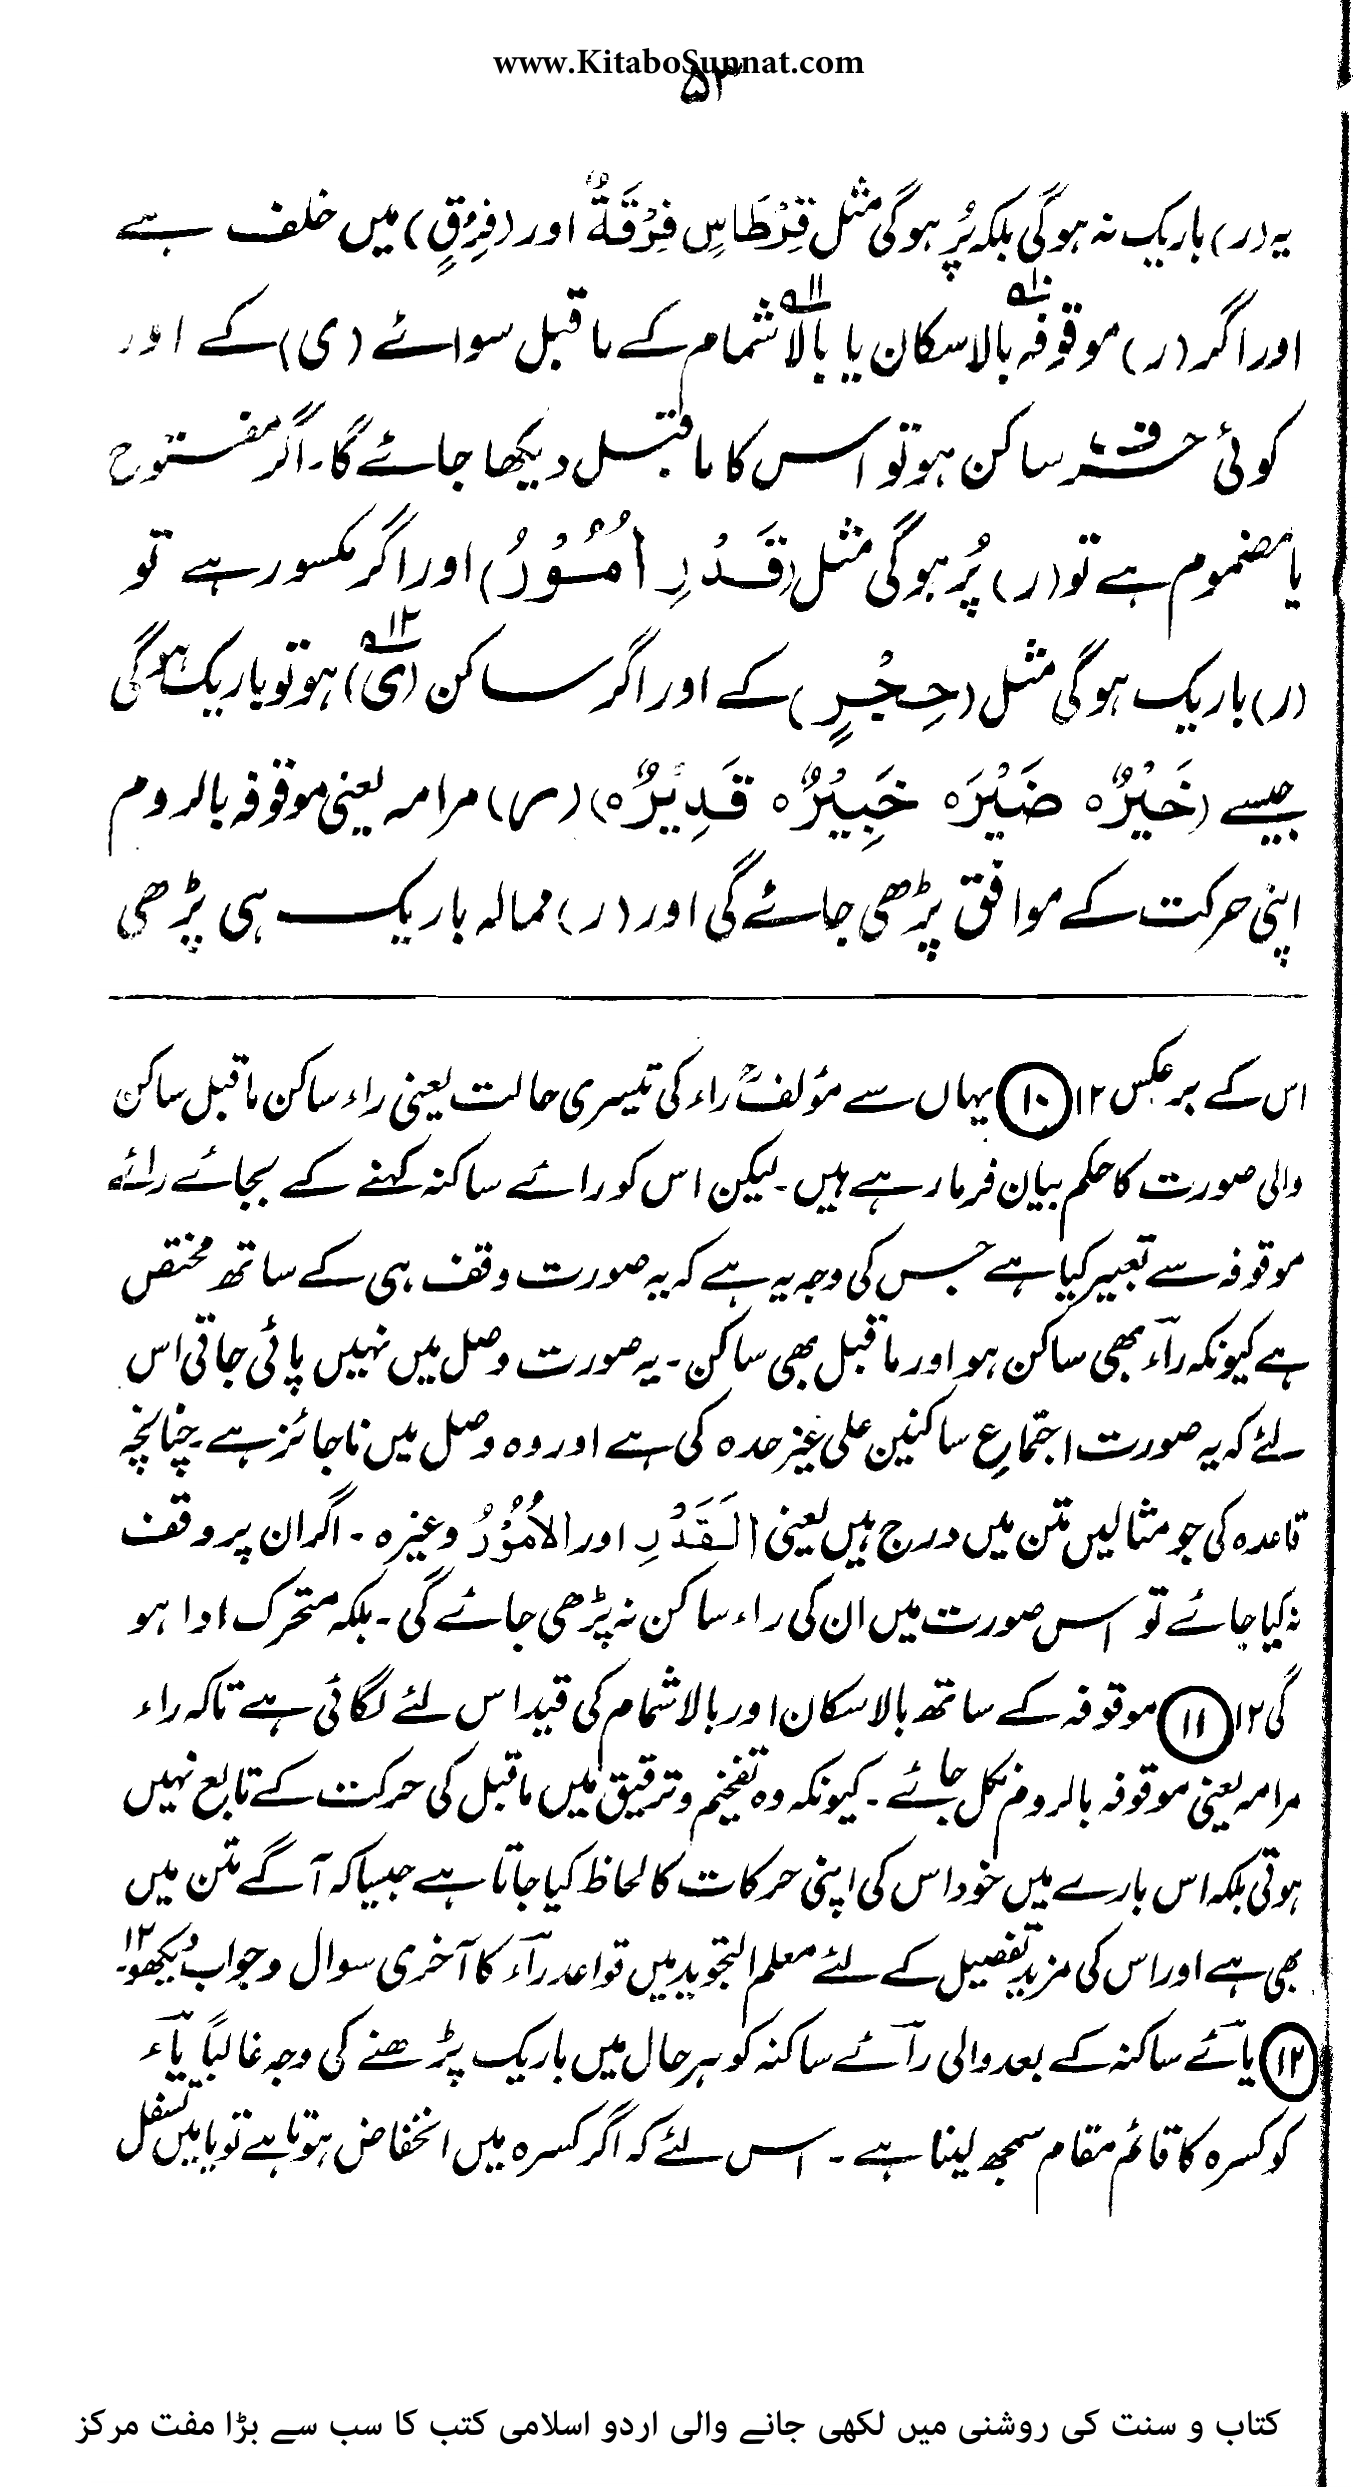 www.KitaboSunnat.com
۵۳
یہ (ر) باریک نہ ہوگی بلکہ پُر ہوگی مثل قِرْطَاسٍ فِرْقَةٌ اور (فِرْقٍ) میں خلف ہے
اور اگر (ر) موقوفہ ۱۰ بالاسکان یا بالاشمام ۱۱ کے ماقبل سوائے (ی) کے اور
کوئی حرف ساکن ہو تو اس کا ماقبل دیکھا جائے گا۔ اگر مفتوح
یا مضموم ہے تو (ر) پُر ہوگی مثل (قَدْرِ اُمُوْرُ) اور اگر مکسور ہے تو
(ر) باریک ہوگی مثل (حِجْرٍ) کے اور اگر ساکن (ی) ۱۲ ہو تو باریک ہوگی
جیسے (خَيْرٌہ ضَيْرَہ خَبِيْرٌہ قَدِيْرٌہ) (ر) مرامہ یعنی موقوفہ بالروم
اپنی حرکت کے موافق پڑھی جائے گی اور (ر) ممالہ باریک ہی پڑھی
اس کے برعکس ۱۲ ⑩ یہاں سے مؤلفؒ راء کی تیسری حالت یعنی راء ساکن ماقبل ساکن
والی صورت کا حکم بیان فرما رہے ہیں۔ لیکن اس کو رائے ساکنہ کہنے کے بجائے رائے
موقوفہ سے تعبیر کیا ہے جس کی وجہ یہ ہے کہ یہ صورت وقف ہی کے ساتھ مختص
ہے کیونکہ راء بھی ساکن ہو اور ماقبل بھی ساکن۔ یہ صورت وصل میں نہیں پائی جاتی اس
لئے کہ یہ صورت اجتماعِ ساکنین علی غیر حدہ کی ہے اور وہ وصل میں ناجائز ہے۔ چنانچہ
قاعدہ کی جو مثالیں متن میں درج ہیں یعنی اَلْقَدْرِ اور الْاُمُوْرُ وغیرہ۔ اگر ان پر وقف
نہ کیا جائے تو اس صورت میں ان کی راء ساکن نہ پڑھی جائے گی۔ بلکہ متحرک ادا ہو
گی ۱۲ ⑪ موقوفہ کے ساتھ بالاسکان اور بالاشمام کی قید اس لئے لگائی ہے تاکہ راء
مرامہ یعنی موقوفہ بالروم نکل جائے۔ کیونکہ وہ تفخیم و ترقیق میں ماقبل کی حرکت کے تابع نہیں
ہوتی بلکہ اس بارے میں خود اس کی اپنی حرکات کا لحاظ کیا جاتا ہے جیسا کہ آگے متن میں
بھی ہے اور اس کی مزید تفصیل کے لئے معلم التجوید میں قواعد راء کا آخری سوال و جواب دیکھو۔ ۱۲
⑫ یائے ساکنہ کے بعد والی رائے ساکنہ کو ہر حال میں باریک پڑھنے کی وجہ غالباً یاء
کو کسرہ کا قائم مقام سمجھ لینا ہے۔ اس لئے کہ اگر کسرہ میں انخفاض ہوتا ہے تو یا میں تسفل
کتاب و سنت کی روشنی میں لکھی جانے والی اردو اسلامی کتب کا سب سے بڑا مفت مرکز